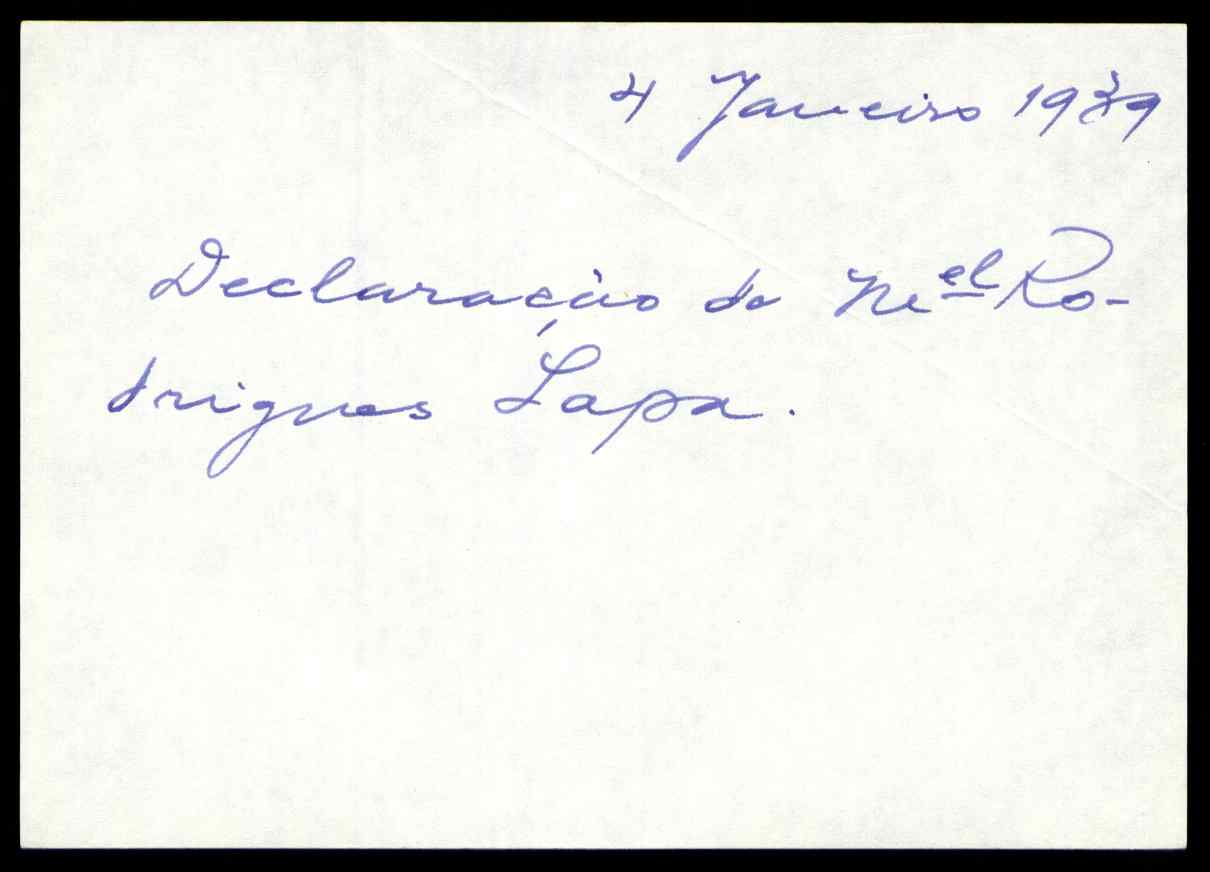 4 Janeiro 1939
Declaração de Mel Ro-
drigues Lapa.